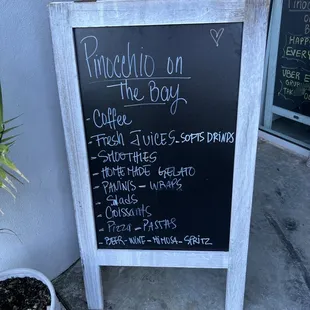 Pinocchio on
The Bay
- Coffee
- Fresh Juices - Softs Drinds
- Smoothies
- Home made Gelato
- Paninis - Wraps
- Salads
- Croissants
- Pizza - Pastas
- Beer - Wine - Mimosa - Spritz
Happy
Every
Uber E